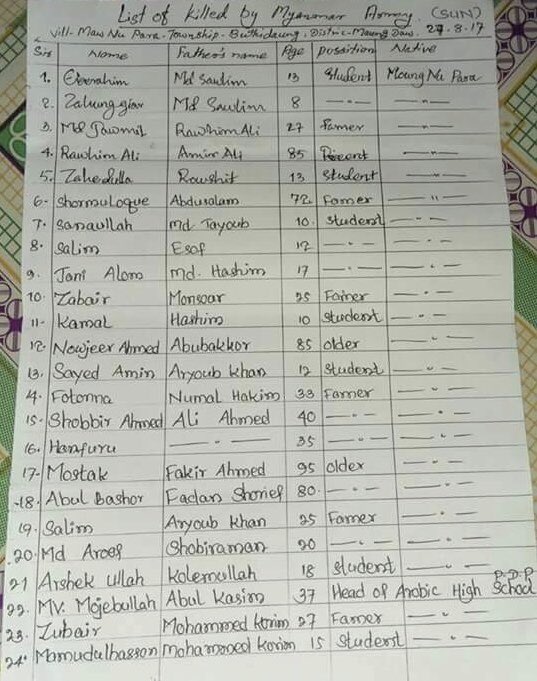 List of killed by Myanmar Army. (SUN)
Vill- Maw Nu Para. Township- Buthidaung, Distric- Maung Daw. 27.8.17
Sir Name Father's name Age possition Native
1. Eberahim Md Saulim 13 Student Moung Nu Para
2. Zahunggiar Md Saulim 8 —"— —"—
3. Md Jowmil Rawhim Ali 27 Famer —"—
4. Rawhim Ali Amir Ali 85 —"—
5. Zahedulla Rowshit 13 Student —"—
6- Shormuloque Abdusalam 72 Famer —"—
7. Sanaullah Md Tayoub 10. Student —"—
8. Salim Esof 12 —"— —"—
9. Jani Alom Md. Hashim 17 —"— —"—
10. Zabair Monsoar 25 Famer —"—
11- Kamal Hashim 10 student —"—
12- Nowjeer Ahmed Abubakkor 85 older —"—
13. Sayed Amin Aryoub khan 12 Student —"—
4. Fotorma Numal Hakim 33 Famer —"—
15- Shobbir Ahmed Ali Ahmed 40 —"— —"—
16. Hanfuru —"— 35 —"— —"—
17- Mostak Fakir Ahmed 95 older —"—
18. Abul Bashor Fadan Shorief 80. —"— —"—
19. Salim Aryoub khan 25 Famer —"—
20. Md Aroef Shobiraman 20 —"— —"—
21 Arshek Ullah Kolemullah 18 student —"—
22. MV. Mojebullah Abul Kasim 37 Head of Arobic High School P.D.P
23. Zubair Mohammed Korim 27 Famer —"—
24. Mamudulhasson Mohammed korim 15 Student —"—